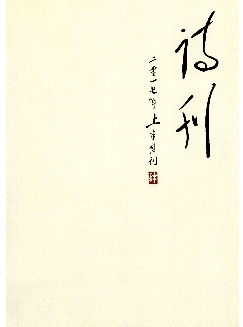 诗刊
二零一七年上半月刊